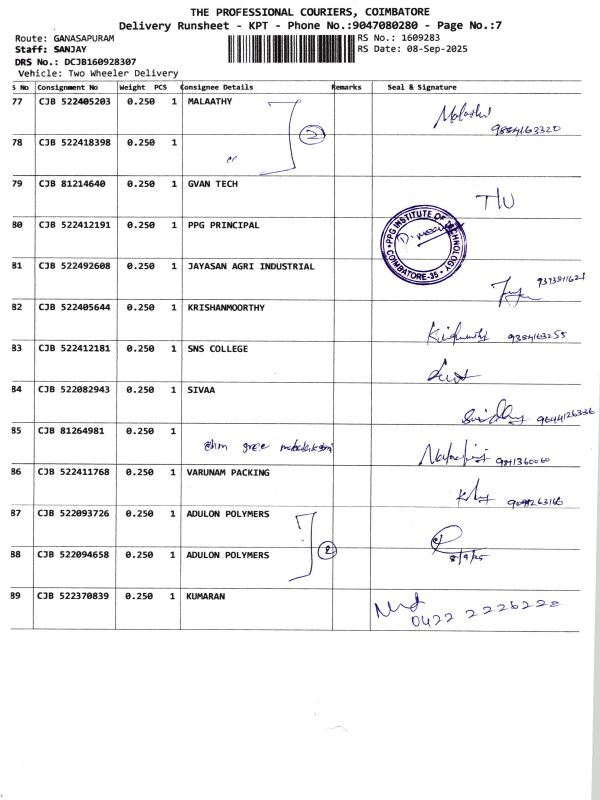 THE PROFESSIONAL COURIERS, COIMBATORE
Delivery Runsheet - KPT - Phone No.:9047080280 - Page No.:7
Route: GANASAPURAM
RS No.: 1609283
Staff: SANJAY
RS Date: 08-Sep-2025
DRS No.: DCJB160928307
Vehicle: Two Wheeler Delivery
S No Consignment No Weight PCS Consignee Details Remarks Seal & Signature
77 CJB 522405203 0.250 1 MALAATHY
Malathi
9884163320
78 CJB 522418398 0.250 1
2
79 CJB 81214640 0.250 1 GVAN TECH
80 CJB 522412191 0.250 1 PPG PRINCIPAL
PPG INSTITUTE OF TECHNOLOGY
COIMBATORE-35
81 CJB 522492608 0.250 1 JAYASAN AGRI INDUSTRIAL
82 CJB 522405644 0.250 1 KRISHANMOORTHY
9384163255
83 CJB 522412181 0.250 1 SNS COLLEGE
84 CJB 522082943 0.250 1 SIVAA
9644126336
85 CJB 81264981 0.250 1
86 CJB 522411768 0.250 1 VARUNAM PACKING
87 CJB 522093726 0.250 1 ADULON POLYMERS
2
8/9/25
88 CJB 522094658 0.250 1 ADULON POLYMERS
89 CJB 522370839 0.250 1 KUMARAN
0422 2226228